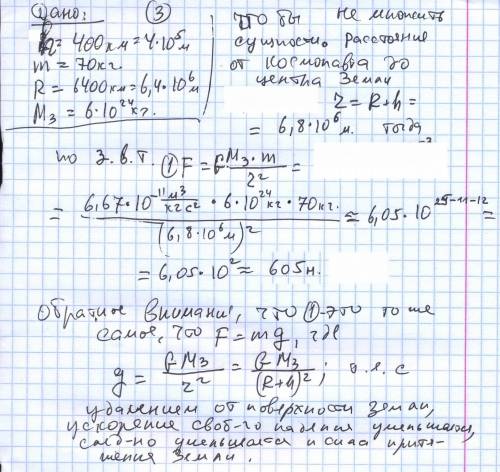 Дано: ③
h = 400км = 4·10⁵м
m = 70кг.
R = 6400км = 6,4·10⁶м
M₃ = 6·10²⁴кг.
Что бы не множить
сущности. Расстояние
от космонавта до
центра Земли
r = R+h =
= 6,8·10⁶м. тогда
по З.В.Т. ① F = G M₃·m / r² =
= 6,67·10⁻¹¹ м³/кг с² · 6·10²⁴кг · 70кг. / (6,8·10⁶м)² ≈ 6,05·10²⁵⁻¹¹⁻¹² =
= 6,05·10² ≈ 605н.
Обратите внимание, что ①-это то же
самое, что F = mg, где
g = G M₃ / r² = G M₃ / (R+h)²; т.е. с
удалением от поверхности земли,
ускорение своб-го падения уменьшается,
след-но уменьшается и сила притя-
жения Земли.